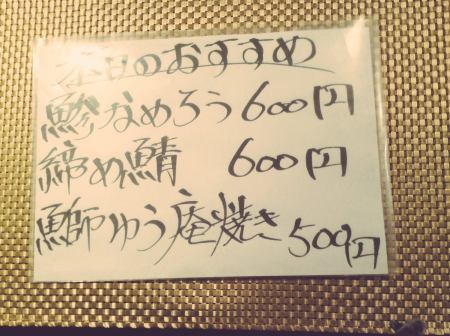 本日のおすすめ
鯵なめろう 600円
締め鯖 600円
鰤ゆう庵焼き 500円